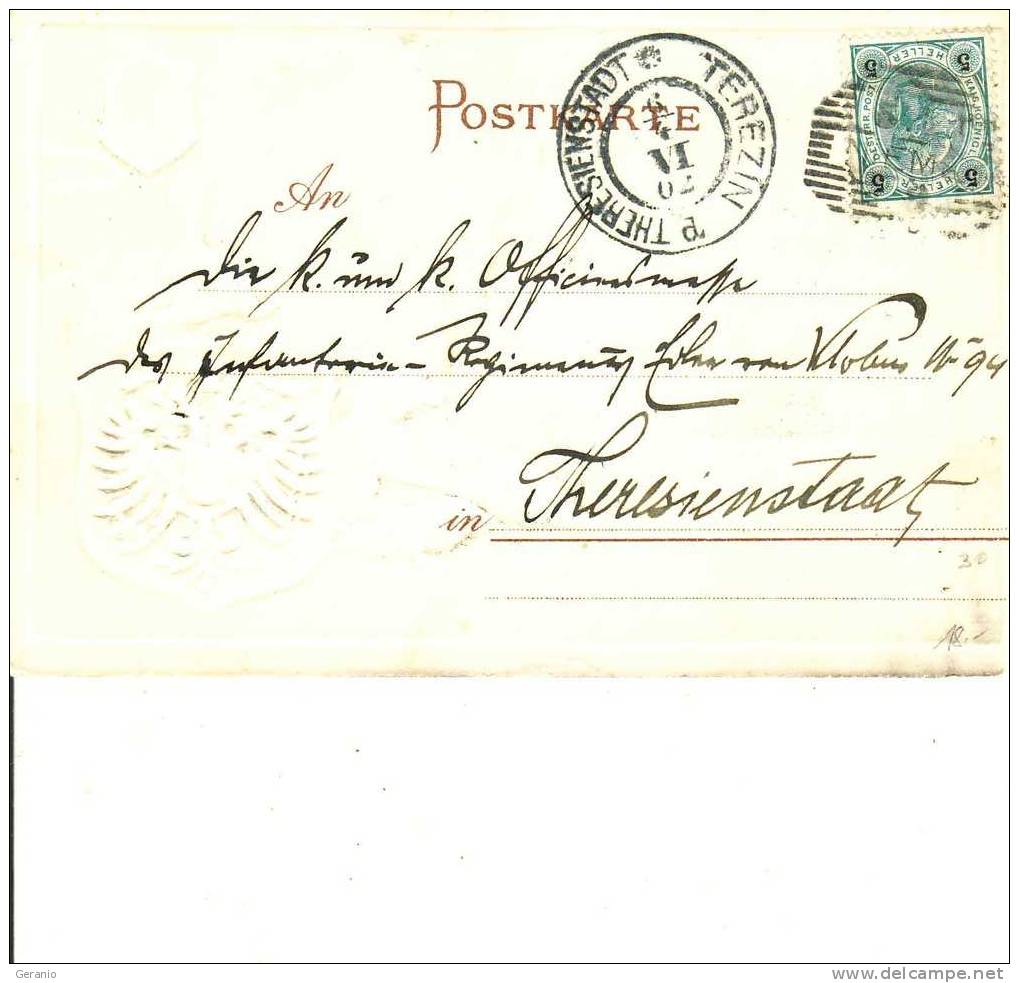 POSTKARTE
THERESIENSTADT TEREZIN
VI
02
5 HELLER 5
KAIS. KOENIGL.
OESTERR. POST
5 HELLER 5
An
die k. und k. Officiersmesse
des Infanterie-Regiments Edler von Nº 94
in Theresienstadt
30
18.-
Geranio
delcampe.net